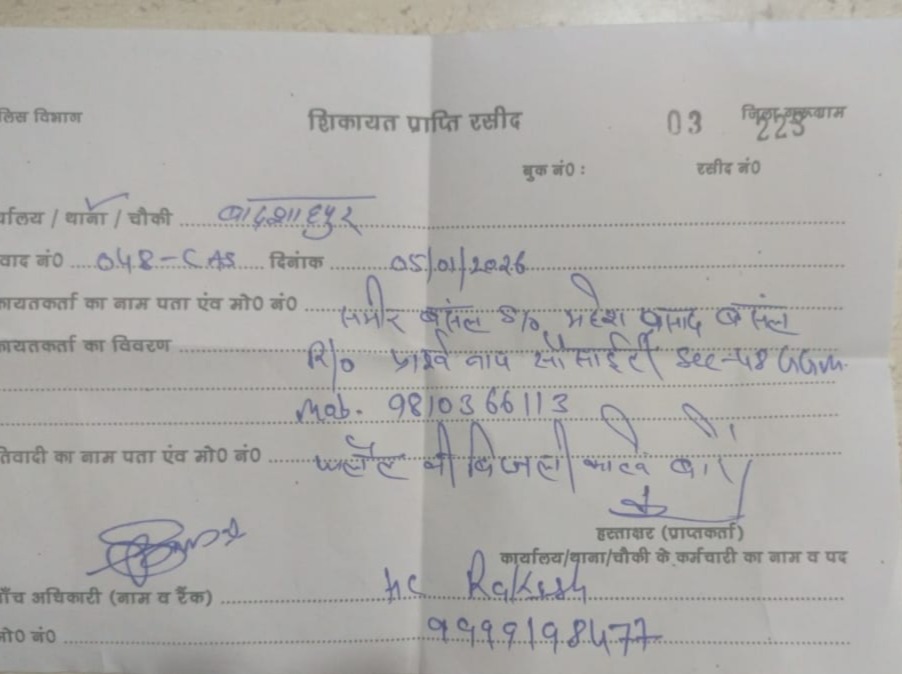 लिस विभाग शिकायत प्राप्ति रसीद 03 जिला गुरूग्राम
223
बुक नं0 : रसीद नं0
र्यालय / थाना / चौकी बादशाहपुर
वाद नं0 048-CAS दिनांक 05/01/2026
कायतकर्ता का नाम पता एंव मो0 नं0 समीर बंसल S/o महेश प्रसाद बंसल
कायतकर्ता का विवरण R/o पार्श्व नाथ सोसाईटी Sec-48 GGM.
Mob. 9810366113
तिवादी का नाम पता एंव मो0 नं0 की बिजली
हस्ताक्षर (प्राप्तकर्ता)
कार्यालय/थाना/चौकी के कर्मचारी का नाम व पद
ाँच अधिकारी (नाम व रैंक) HC Rakesh
मो0 नं0 9999198477